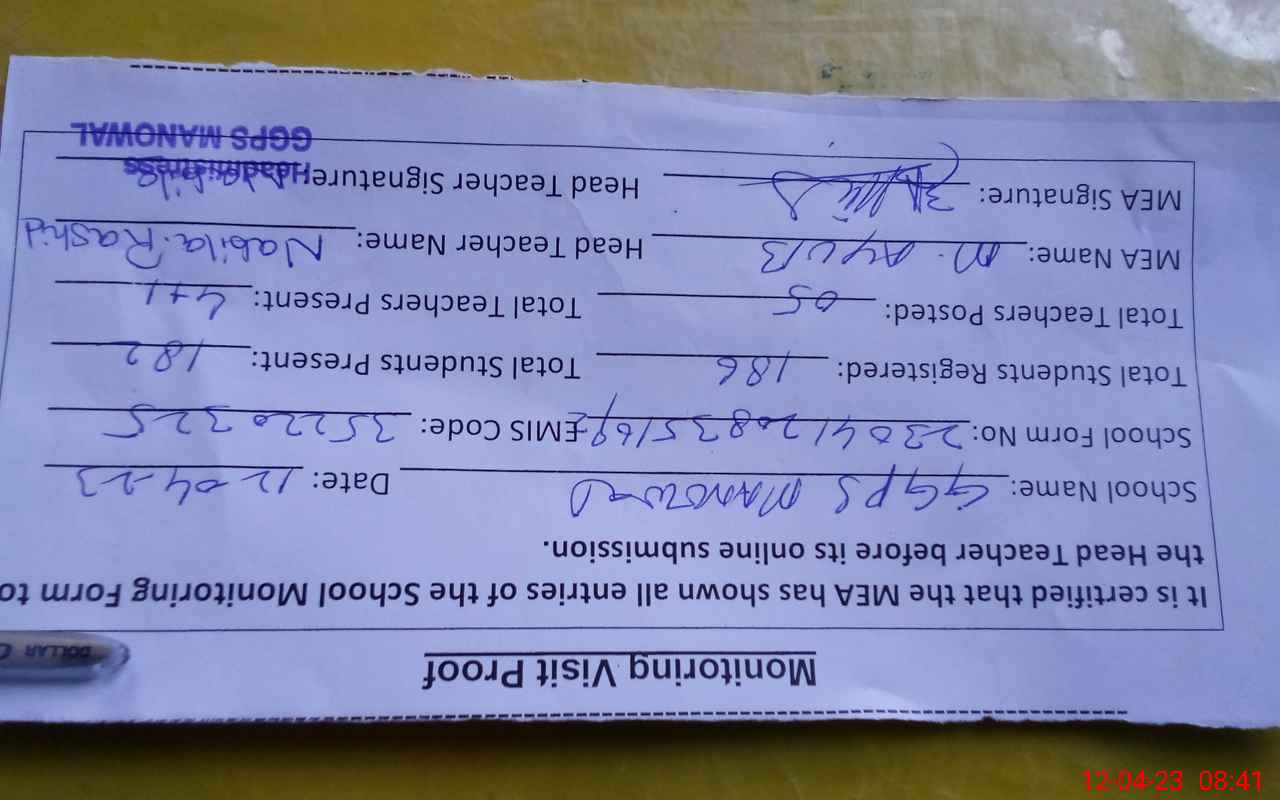 Monitoring Visit Proof
It is certified that the MEA has shown all entries of the School Monitoring Form to
the Head Teacher before its online submission.
School Name: GGPS MANOWAL Date: 12-04-23
School Form No: EMIS Code: 35220325
Total Students Registered: 186 Total Students Present: 182
Total Teachers Posted: 05 Total Teachers Present: 4+1
MEA Name: M. AYUB Head Teacher Name: Nabila Rashid
MEA Signature: Head Teacher Signature: Nabila
Headmistress
GGPS MANOWAL
DOLLAR
12-04-23 08:41